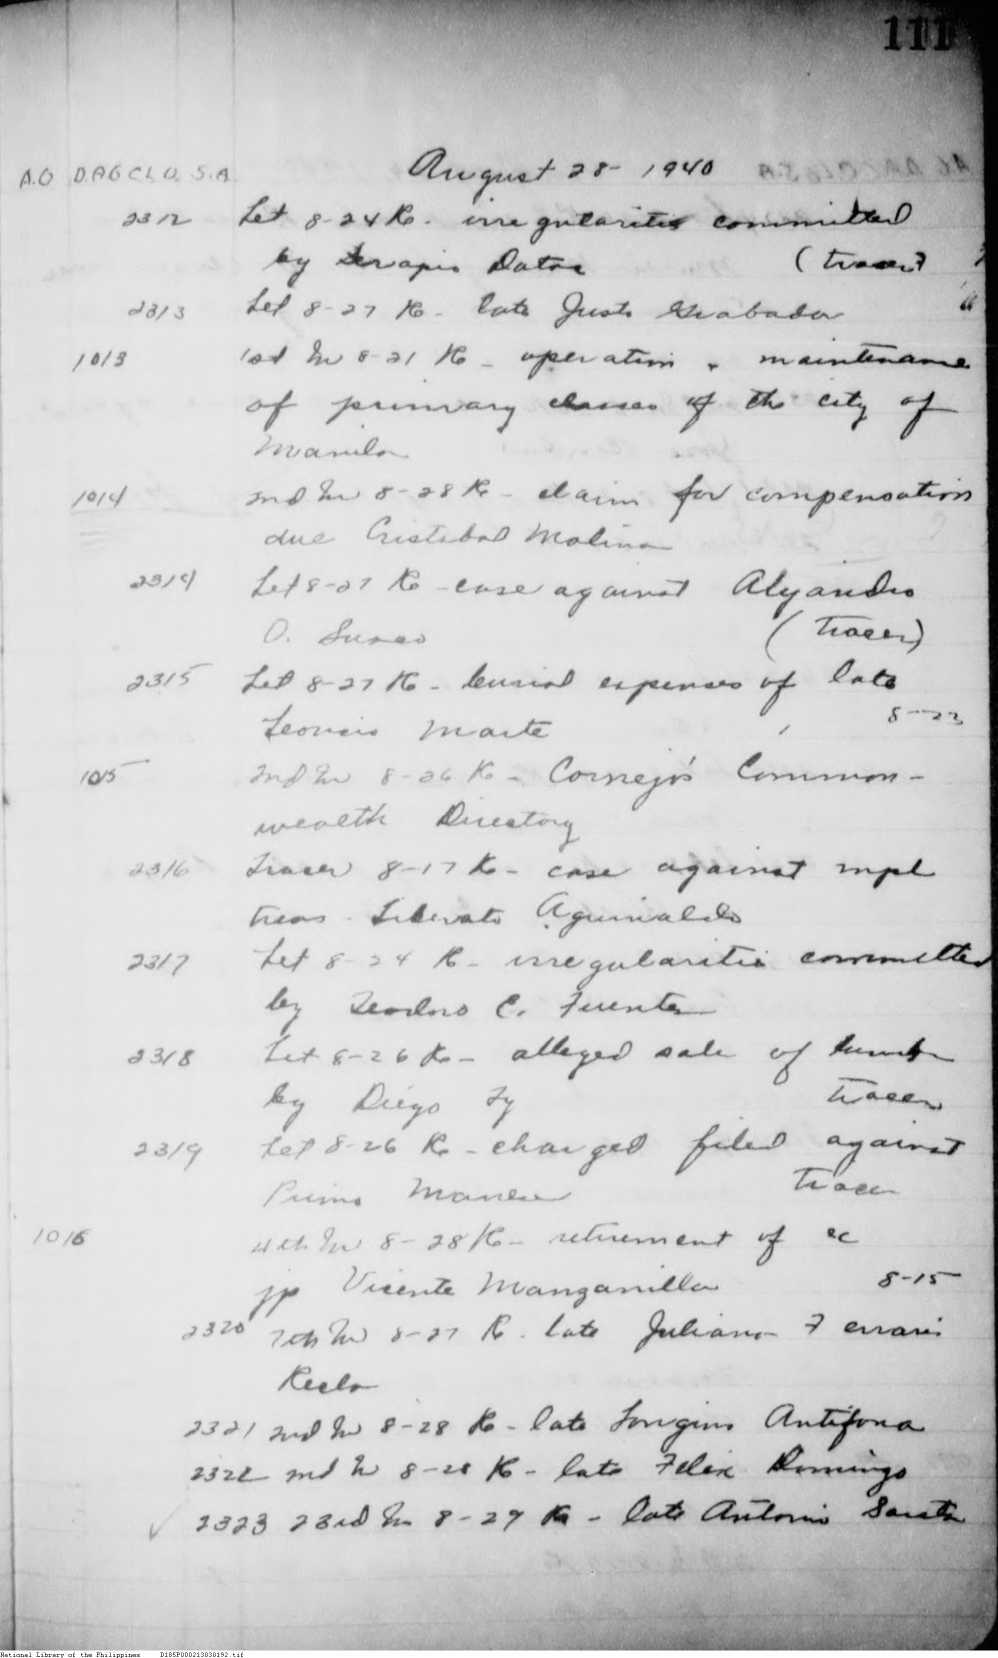 111
A.O D.AG CL O. S.A.
August 28- 1940
2312 Let 8-24 Re- irregularities committed
by Serapio Datoc (tracer)
2313 Let 8-27 Re- late Justo
1013 1st In 8-21 Re- operation & maintenance
of primary classes of the city of
Manila
1014 2nd In 8-28 Re- claim for compensation
due Cristobal Molina
2314 Let 8-27 Re- case against Alejandro
O. (tracer)
2315 Let 8-27 Re- burial expenses of late
Leoncio Marte 8-23
1015 2nd In 8-26 Re- Cornejo's Common-
wealth Directory
2316 Tracer 8-17 Re- case against mpl
treas. Liberato Aguinaldo
2317 Let 8-24 Re- irregularities committed
by Teodoro C. Fuentes
2318 Let 8-26 Re- alleged sale of lumber
by Diego Ty tracer
2319 Let 8-26 Re- charged filed against
Primo tracer
1016 4th In 8-28 Re- retirement of ex
jp Vicente Manganilla 8-15
2320 7th In 8-27 Re- late Juliana Ferraris
Recla
2321 2nd In 8-28 Re- late Longino Antifona
2322 2nd In 8-28 Re- late Felix Domingo
2323 23rd In 8-27 Re- late Antonio
National Library of the Philippines D185P000213030192.tif